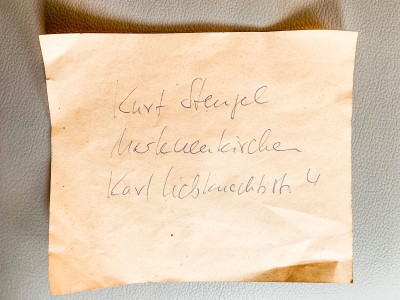 Kurt Stengel
Markneukirchen
Karl Liebknechtstr. 4